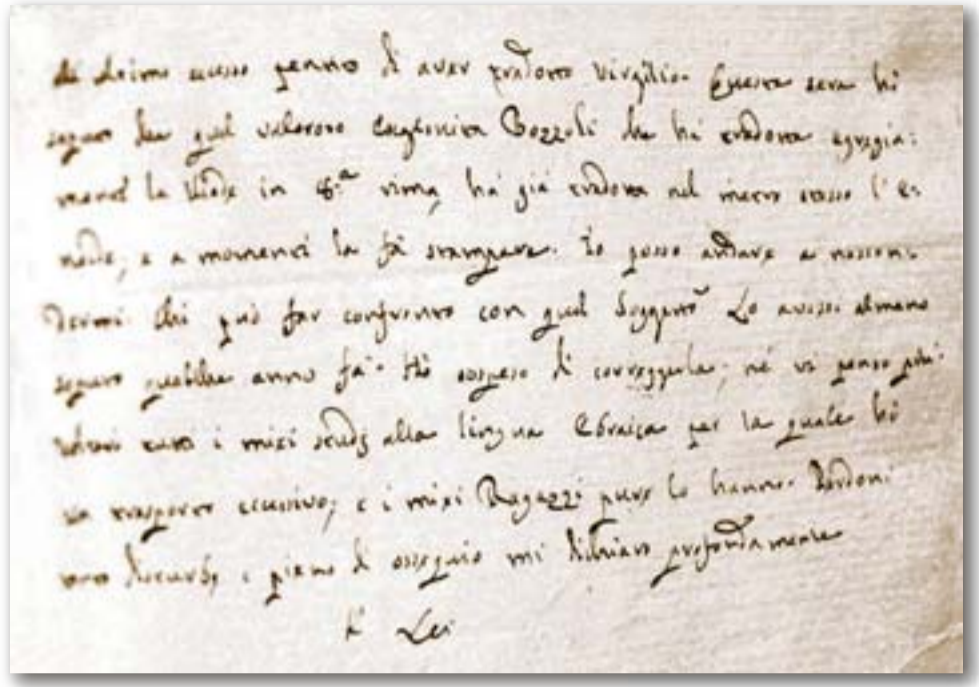 di aver tradotto Virgilio. Questa sera hò
saputo che quel valoroso Exgesuita Bozzoli che hà tradotta egregia:
mente la Iliade in 8.ª rima, hà già tradotta nel metro stesso l'E:
neide, e a momenti la fà stampare. Io posso andare a nascon:
dermi. Chi può far confronto con quel Soggetto? Lo avessi almeno
saputo qualche anno fà. Hò sospeso di correggerla, nè vi penso più.
tutti i miei studj alla lingua Ebraica per la quale hò
un trasporto eccessivo; e i miei Ragazzi pure lo hanno. Perdoni
e pieno di ossequio mi dichiaro profondamente
di Lei